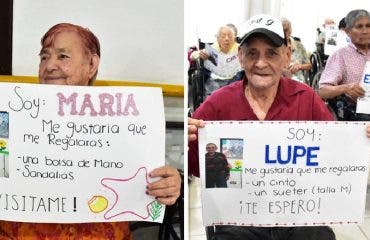 Soy: MARIA
Me gustaria que
me Regalaras:
-una bolsa de Mano
-Sandalias
VISITAME!
SOY:
LUPE
Me gustaria que me regalaras
- un cinto
- un sueter (talla M)
¡TE ESPERO!